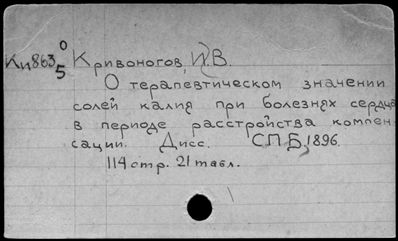 Кн863 0/5 Кривоногов, И.В.
О терапевтическом значении
солей калия при болезнях сердца
в периоде расстройства компен-
сации. Дисс. СПБ, 1896.
114 стр. 21 табл.